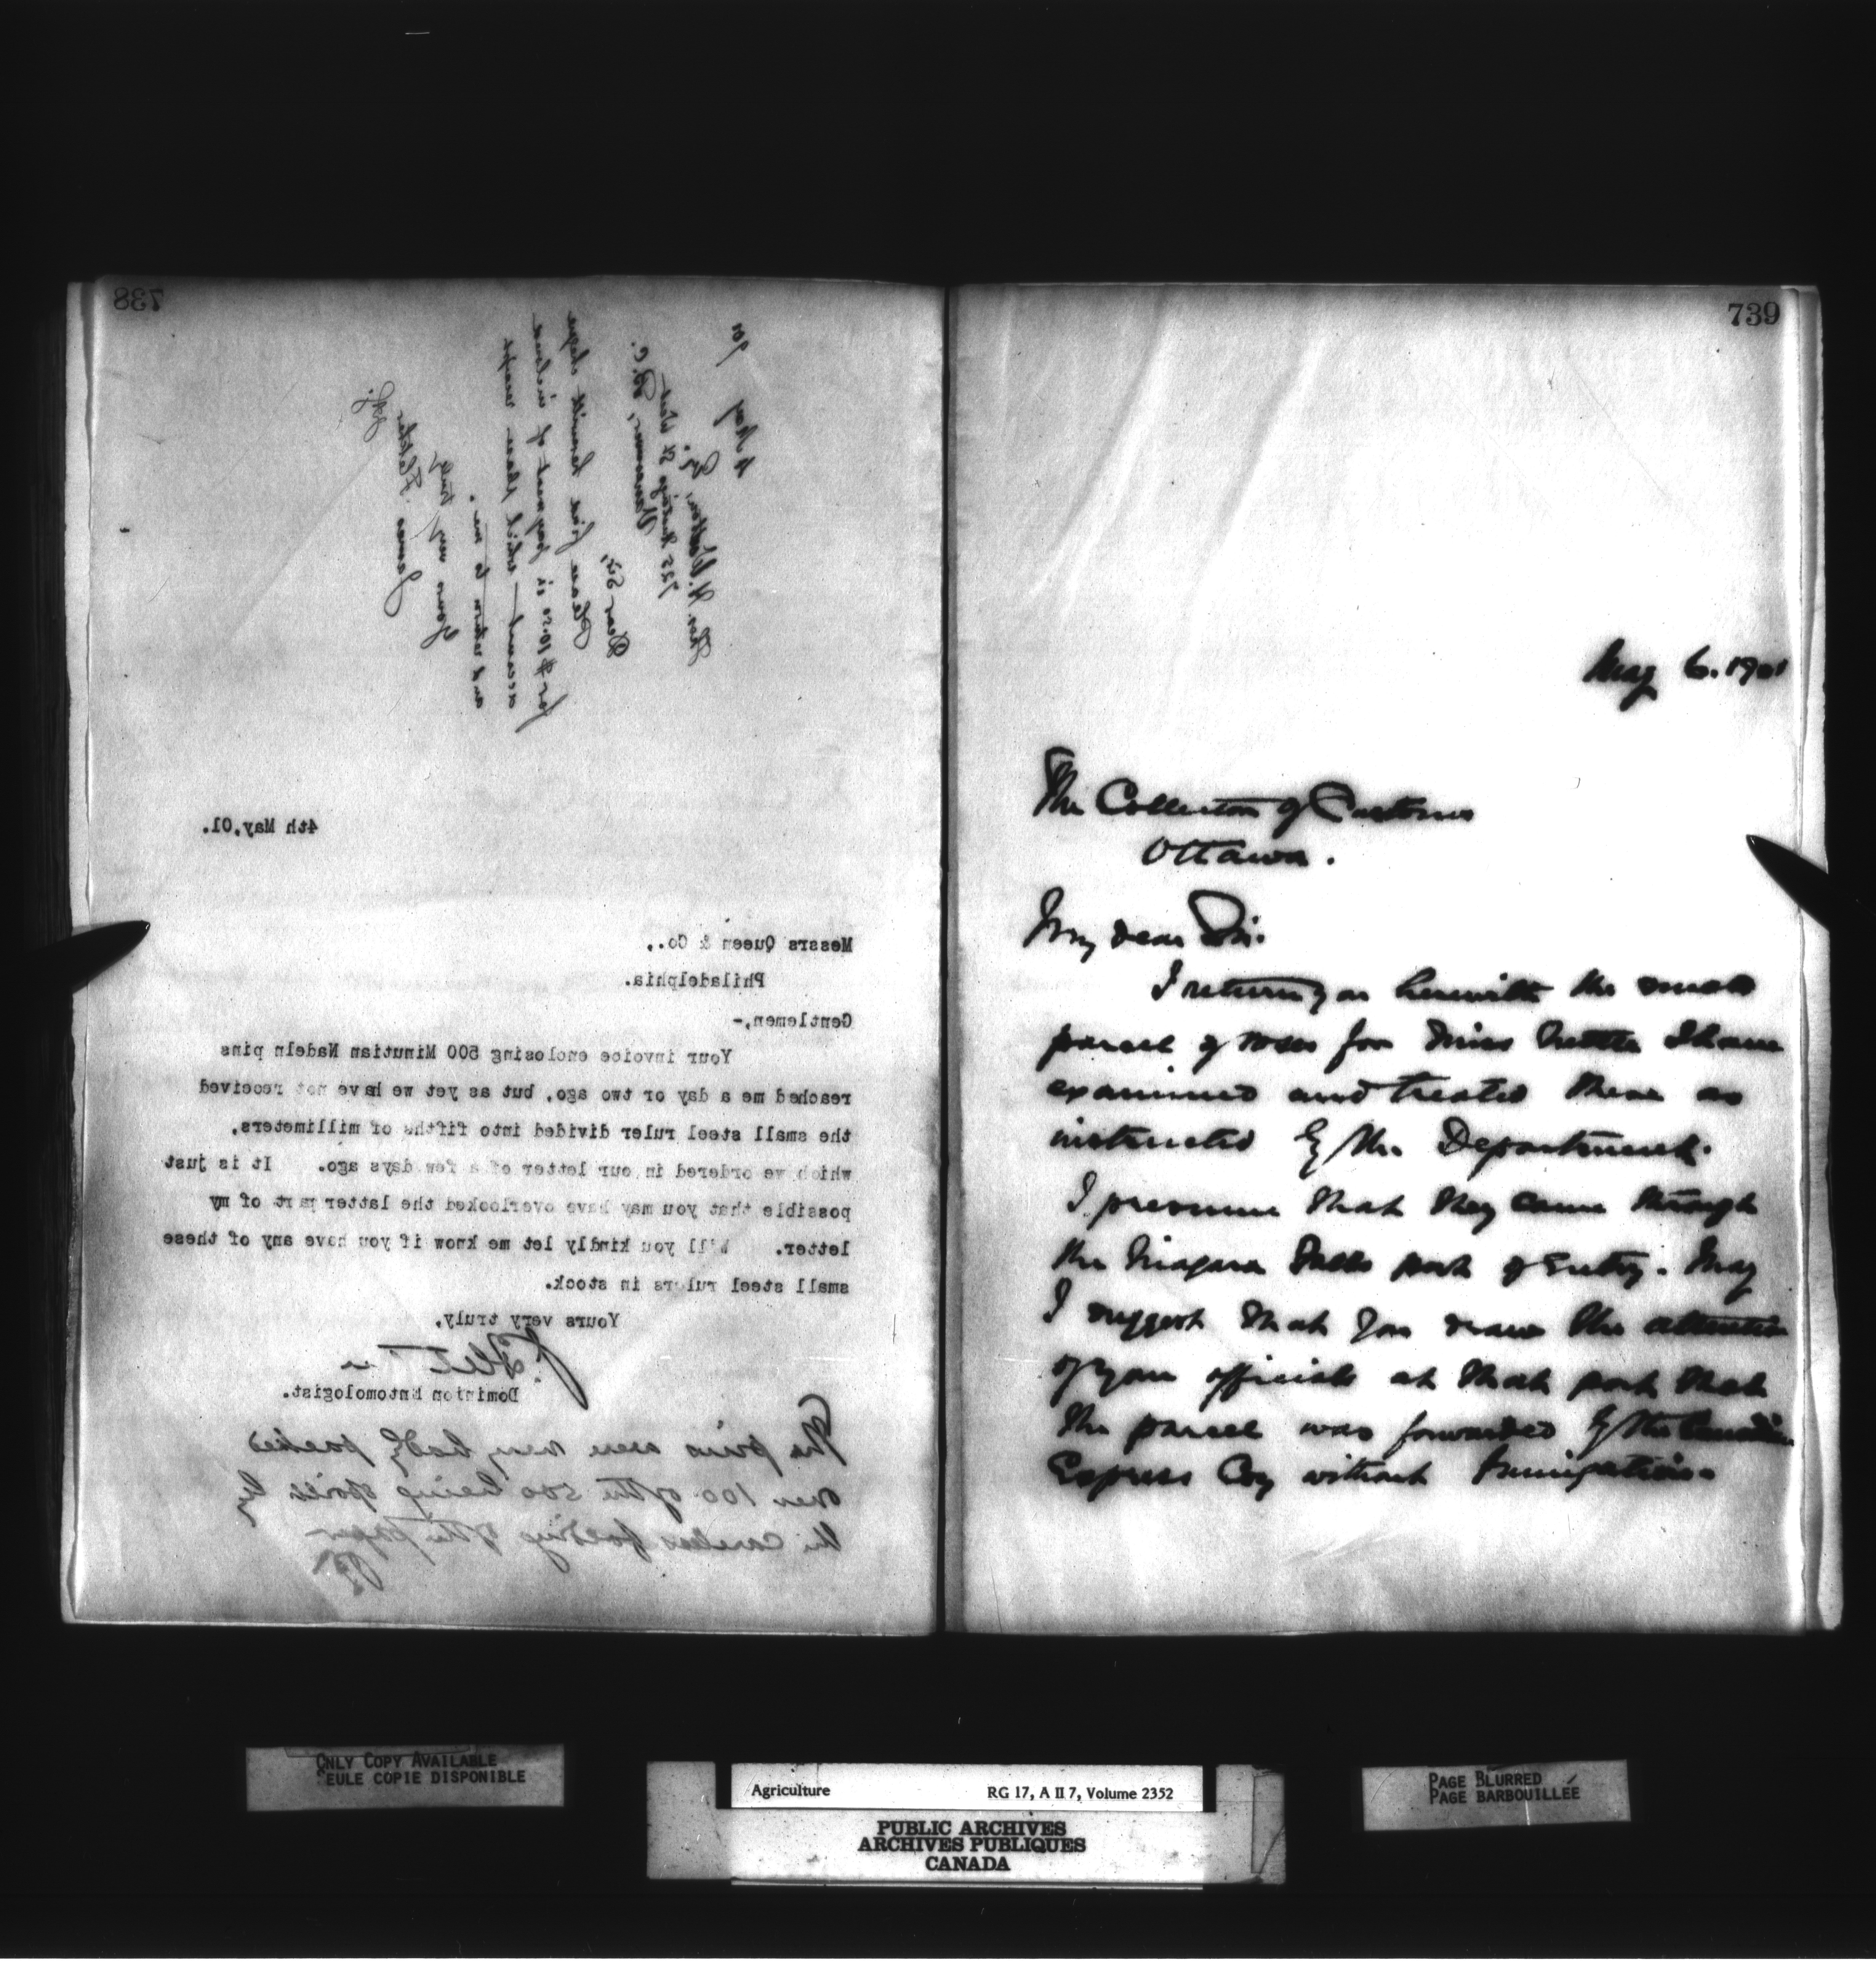 738
4 May 901
Thos. H. Watson, Esq.
725 Hastings St West
Vancouver, B.C.
Dear Sir,
Please find herewith cheque
for $10.50 in payment of inclosed
account — which please receipt
and return to me.
Yours very truly
James Fletcher
4th May,01.
Messrs Queen & Co.,
Philadelphia.
Gentlemen,-
Your invoice enclosing 500 Minutian Nadeln pins
reached me a day or two ago, but as yet we have not received
the small steel ruler divided into fifths of millimeters,
which we ordered in our letter of a few days ago. It is just
possible that you may have overlooked the latter part of my
letter. Will you kindly let me know if you have any of these
small steel rulers in stock.
Yours very truly,
J. Fletcher
Dominion Entomologist.
The pins were very badly packed
over 100 of the 500 being spoilt by
the careless folding of the paper
JF
739
May 6. 1901
The Collector of Customs
Ottawa.
My dear Sir.
I return you herewith the small
parcel of roses for Miss I have
examined and treated these as
instructed by the Department.
I presume that they came through
the Niagara Falls port of Entry. May
I suggest that you draw the attention
of your officials at that port that
the parcel was forwarded by the Canadian
Express Coy without fumigation.
ONLY COPY AVAILABLE
SEULE COPIE DISPONIBLE
Agriculture RG 17, A II 7, Volume 2352
PUBLIC ARCHIVES
ARCHIVES PUBLIQUES
CANADA
PAGE BLURRED
PAGE BARBOUILLÉE